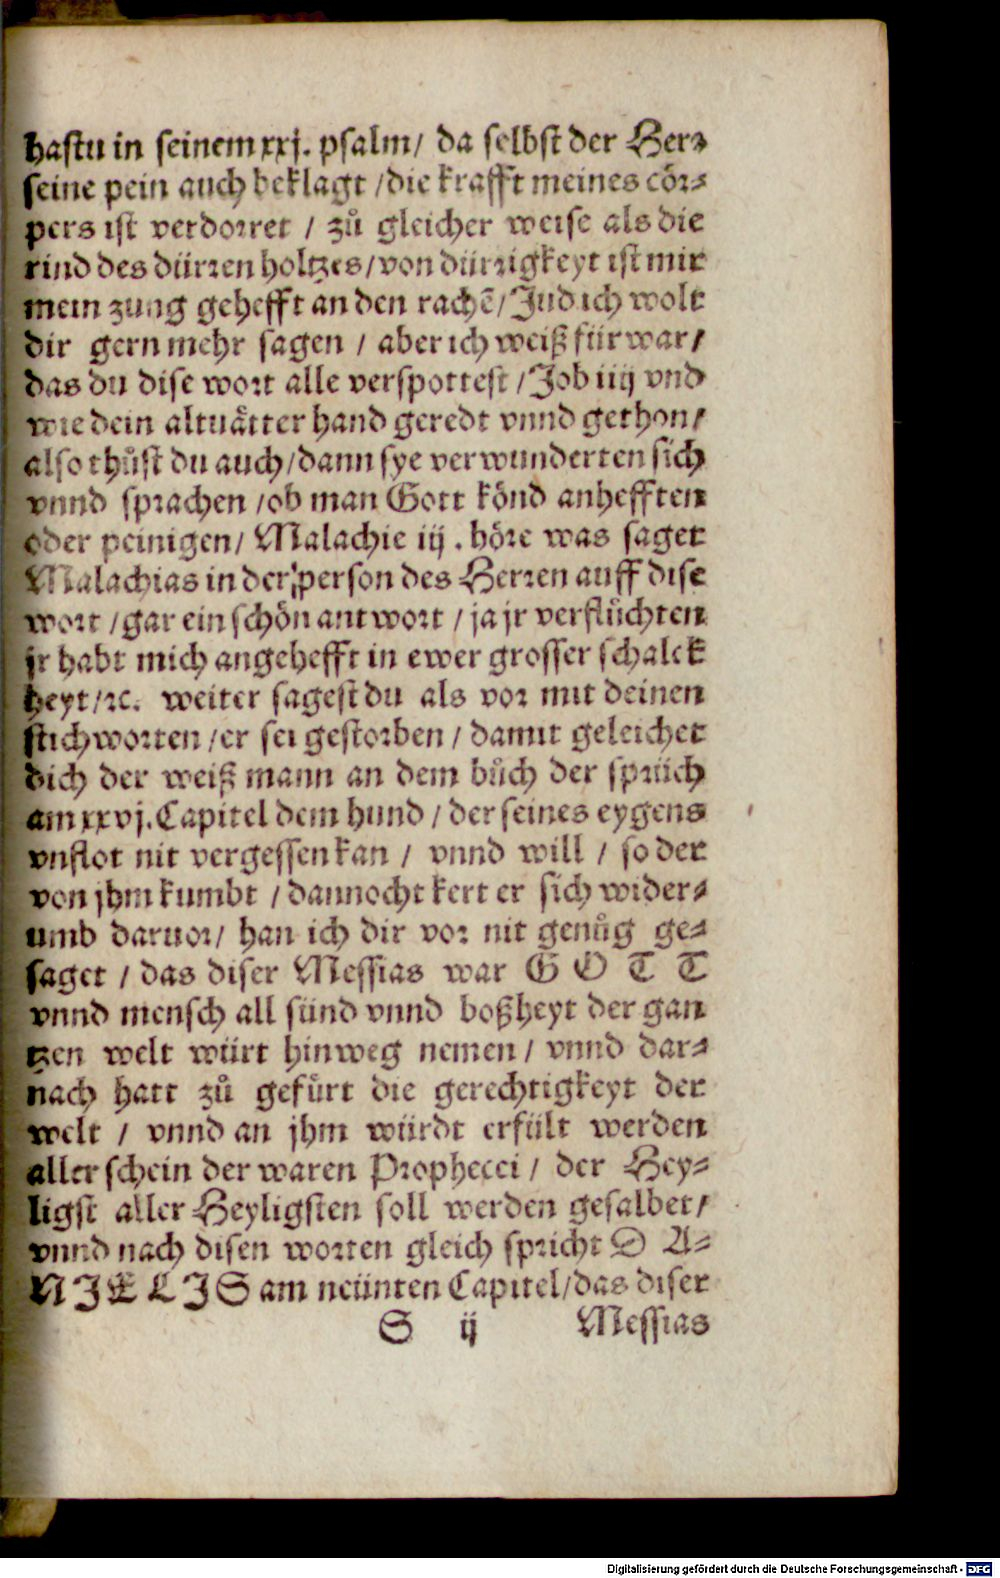 hastu in seinem xxj. psalm/ da selbst der Her⸗
seine pein auch beklagt /die krafft meines cör⸗
pers ist verdorret / zuͦ gleicher weise als die
rind des dürren holtzes/von dürrigkeyt ist mir
mein zung gehefft an den rachē/Jud ich wolt
dir gern mehr sagen / aber ich weiß für war/
das du dise wort alle verspottest /Job iiij vnd
wie dein altuaͤtter hand geredt vnnd gethon/
also thuͦst du auch/dann sye verwunderten sich
vnnd sprachen /ob man Gott könd anhefften
oder peinigen/ Malachie iij . höre was saget
Malachias in der person des Herren auff dise
wort /gar ein schön antwort / ja jr verfluͦchten
jr habt mich angehefft in ewer grosser schalck
heyt/ꝛc. weiter sagest du als vor mit deinen
stichworten /er sei gestorben / damit geleichet
dich der weiß mann an dem buͦch der sprüch
am xxvj. Capitel dem hund / der seines eygens
vnflot nit vergessen kan / vnnd will / so der
von jhm kumbt / dannocht kert er sich wider⸗
umb daruor/ han ich dir vor nit genuͦg ge⸗
saget / das diser Messias war G O T T
vnnd mensch all sünd vnnd boßheyt der gan
tzen welt würt hinweg nemen / vnnd dar⸗
nach hatt zuͦ gefuͤrt die gerechtigkeyt der
welt / vnnd an jhm würdt erfült werden
aller schein der waren Prophecei / der Hey⸗
ligst aller Heyligsten soll werden gesalbet/
vnnd nach disen worten gleich spricht D A⸗
N J E L J S am neünten Capitel/das diser
S ij Messias
Digitalisierung gefördert durch die Deutsche Forschungsgemeinschaft - DFG